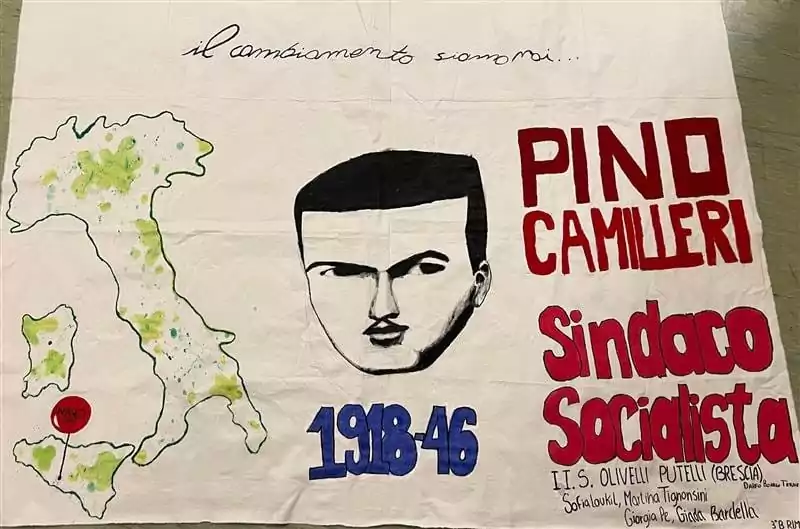 il cambiamento siamo noi...
PINO
CAMILLERI
Sindaco
Socialista
1918-46
I.I.S. OLIVELLI PUTELLI (BRESCIA)
Sofia Loukil, Martina Tignonsini
Giorgia Pe, Giada Bardella